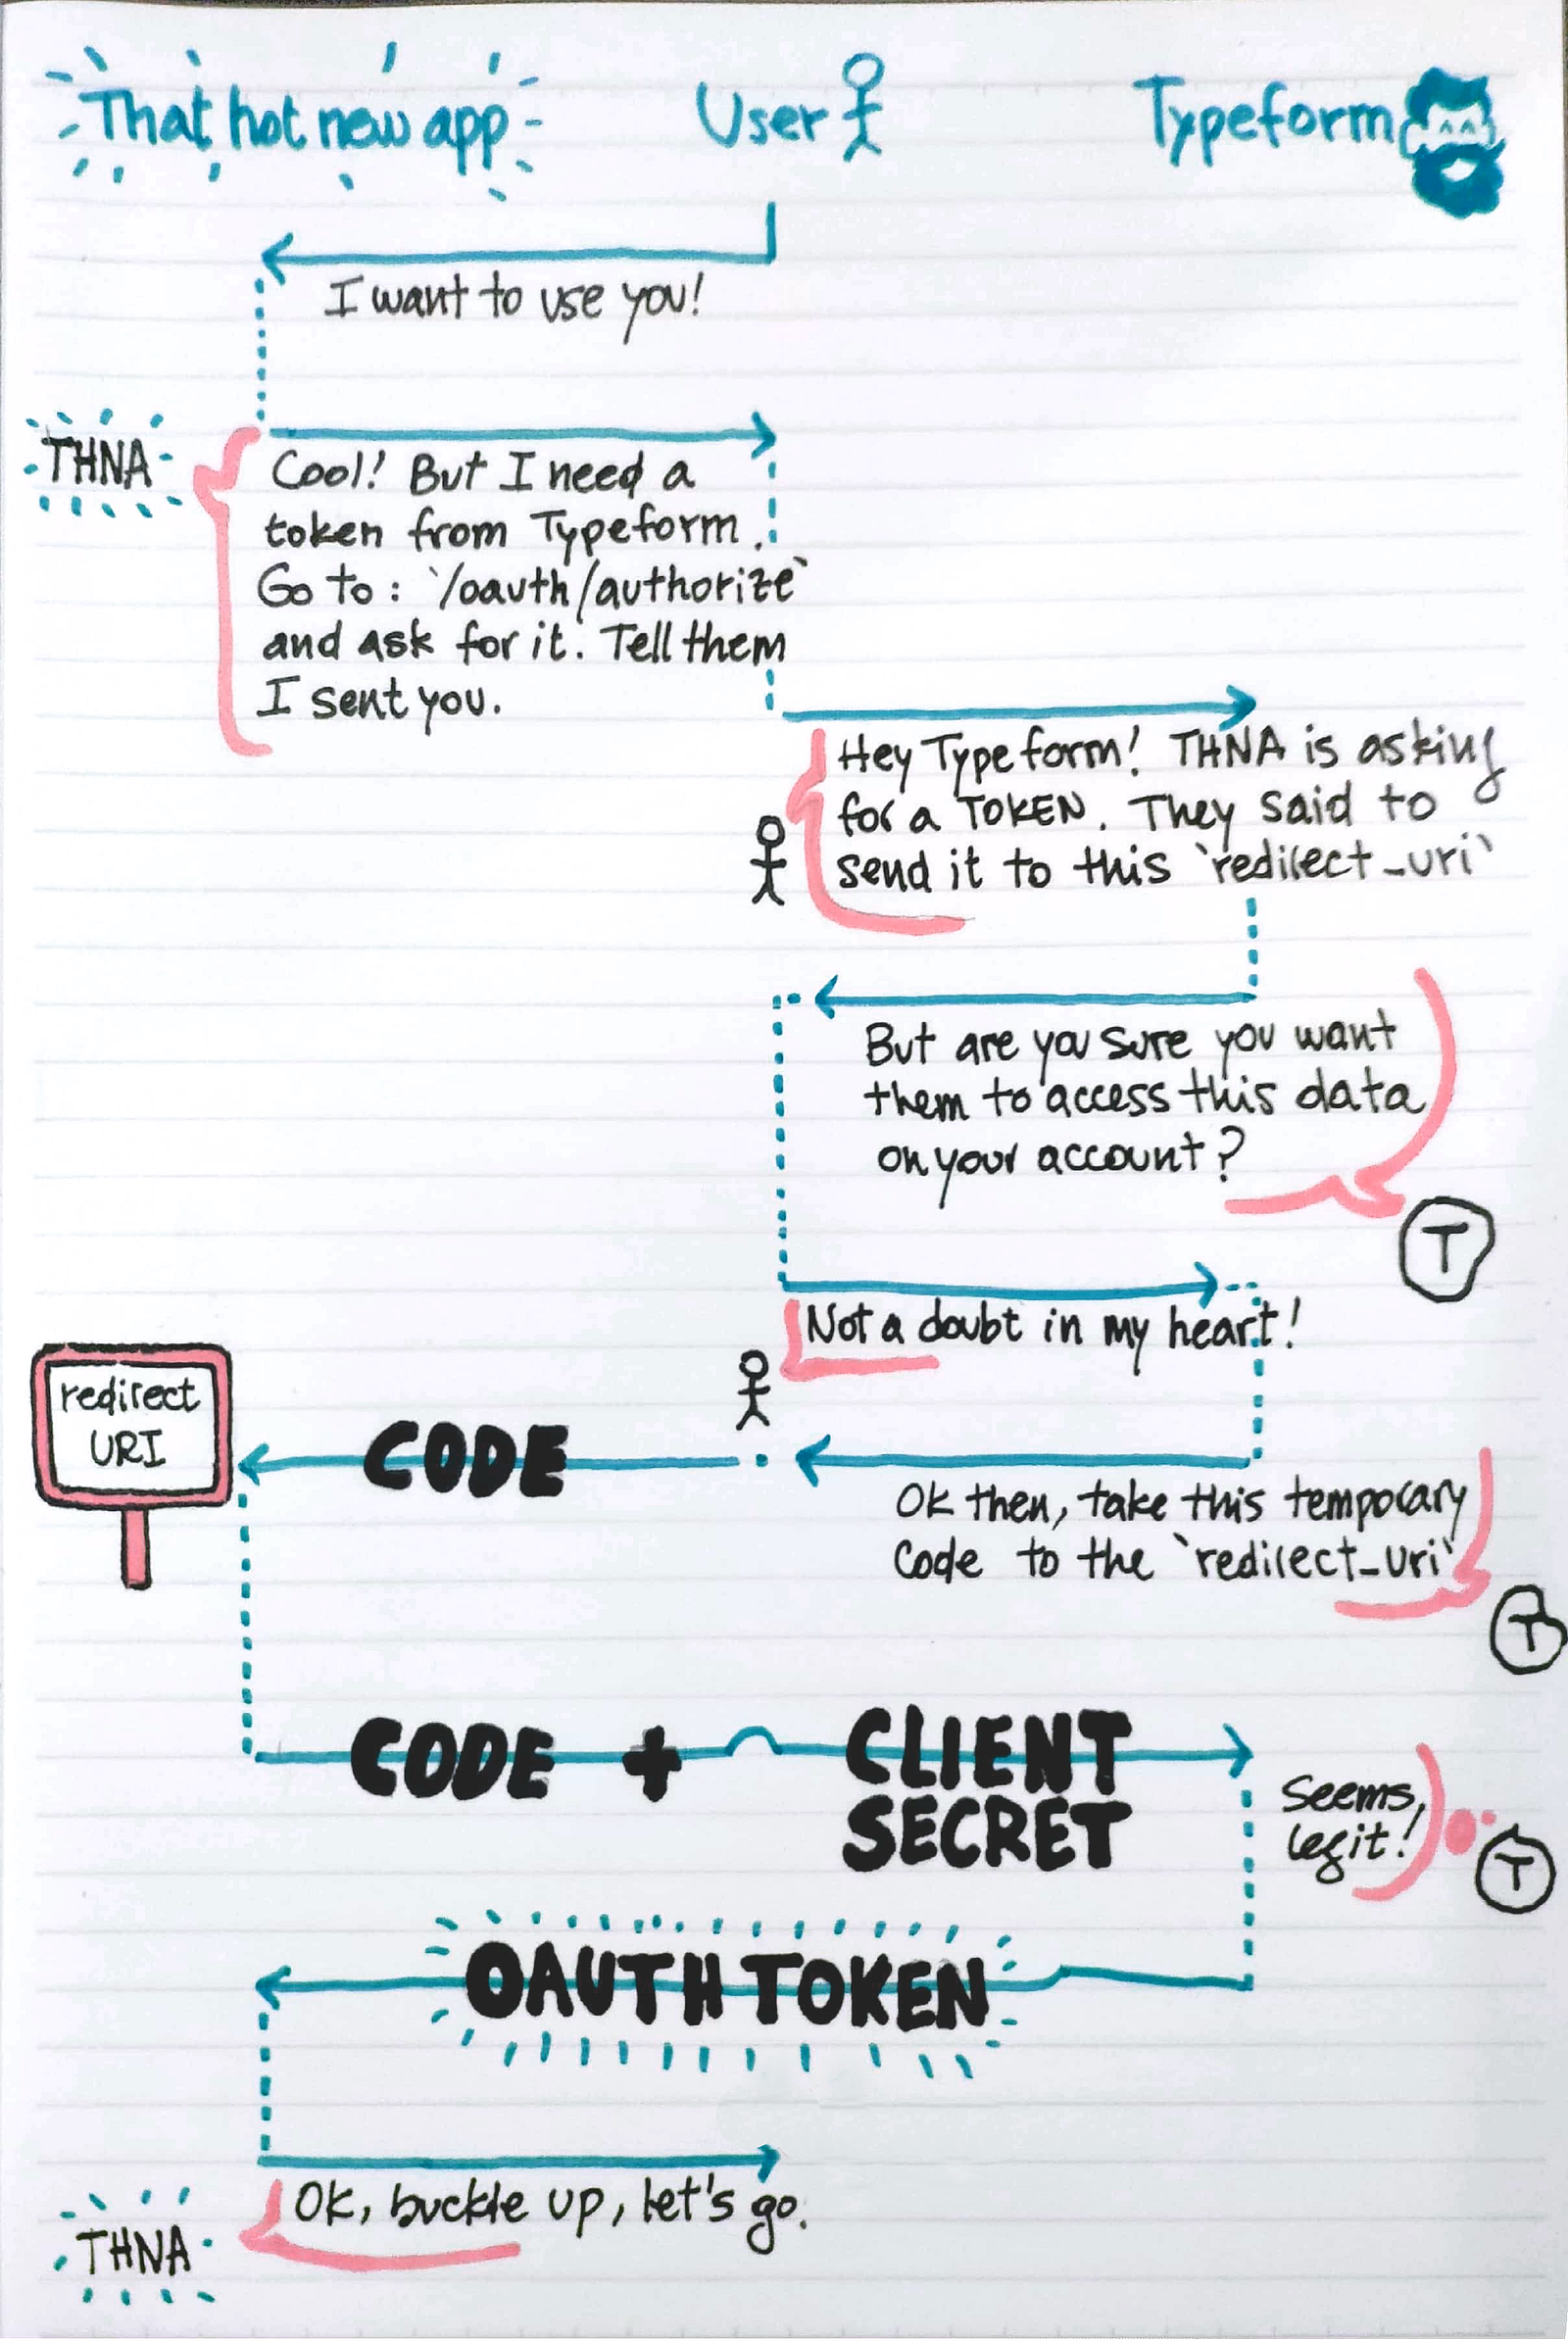 That hot new app
User
Typeform
I want to use you!
THNA
Cool! But I need a
token from Typeform.
Go to: `/oauth/authorize`
and ask for it. Tell them
I sent you.
Hey Typeform! THNA is asking
for a TOKEN. They said to
send it to this `redirect_uri`
But are you sure you want
them to access this data
on your account?
T
Not a doubt in my heart!
redirect
URI
CODE
Ok then, take this temporary
Code to the `redirect_uri`
T
CODE + CLIENT
SECRET
Seems
legit!
T
OAUTH TOKEN
Ok, buckle up, let's go.
THNA